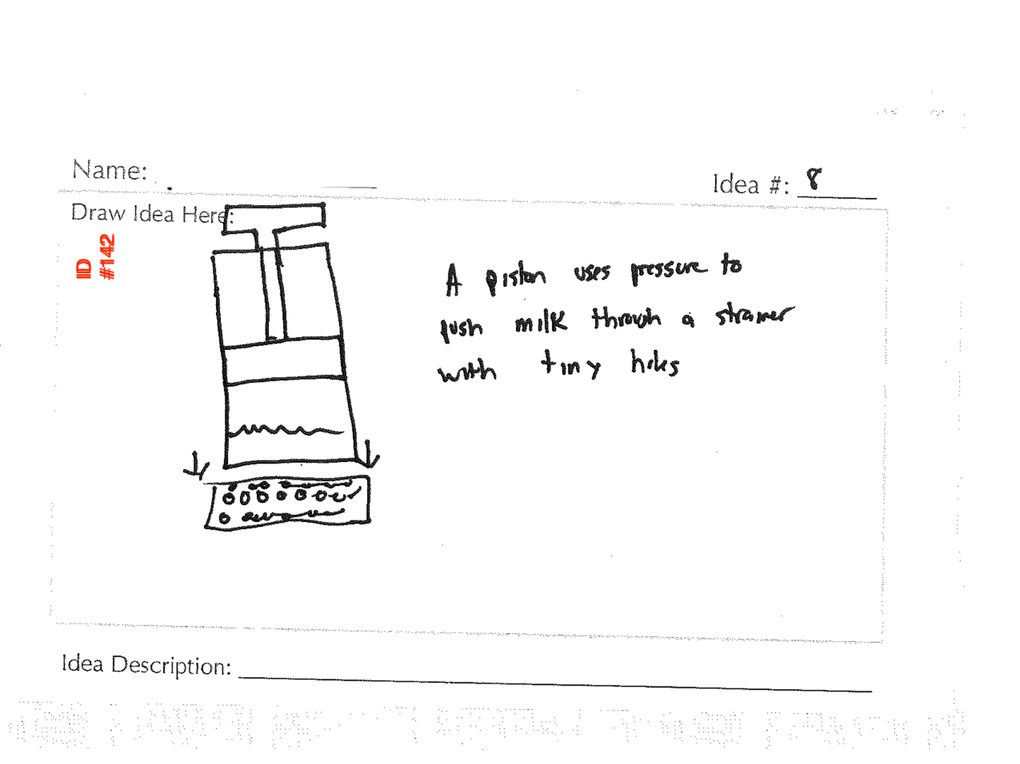 Name:
Idea #: 8
Draw Idea Here:
IID
#142
A piston uses pressure to
push milk through a strainer
with tiny holes
Idea Description: